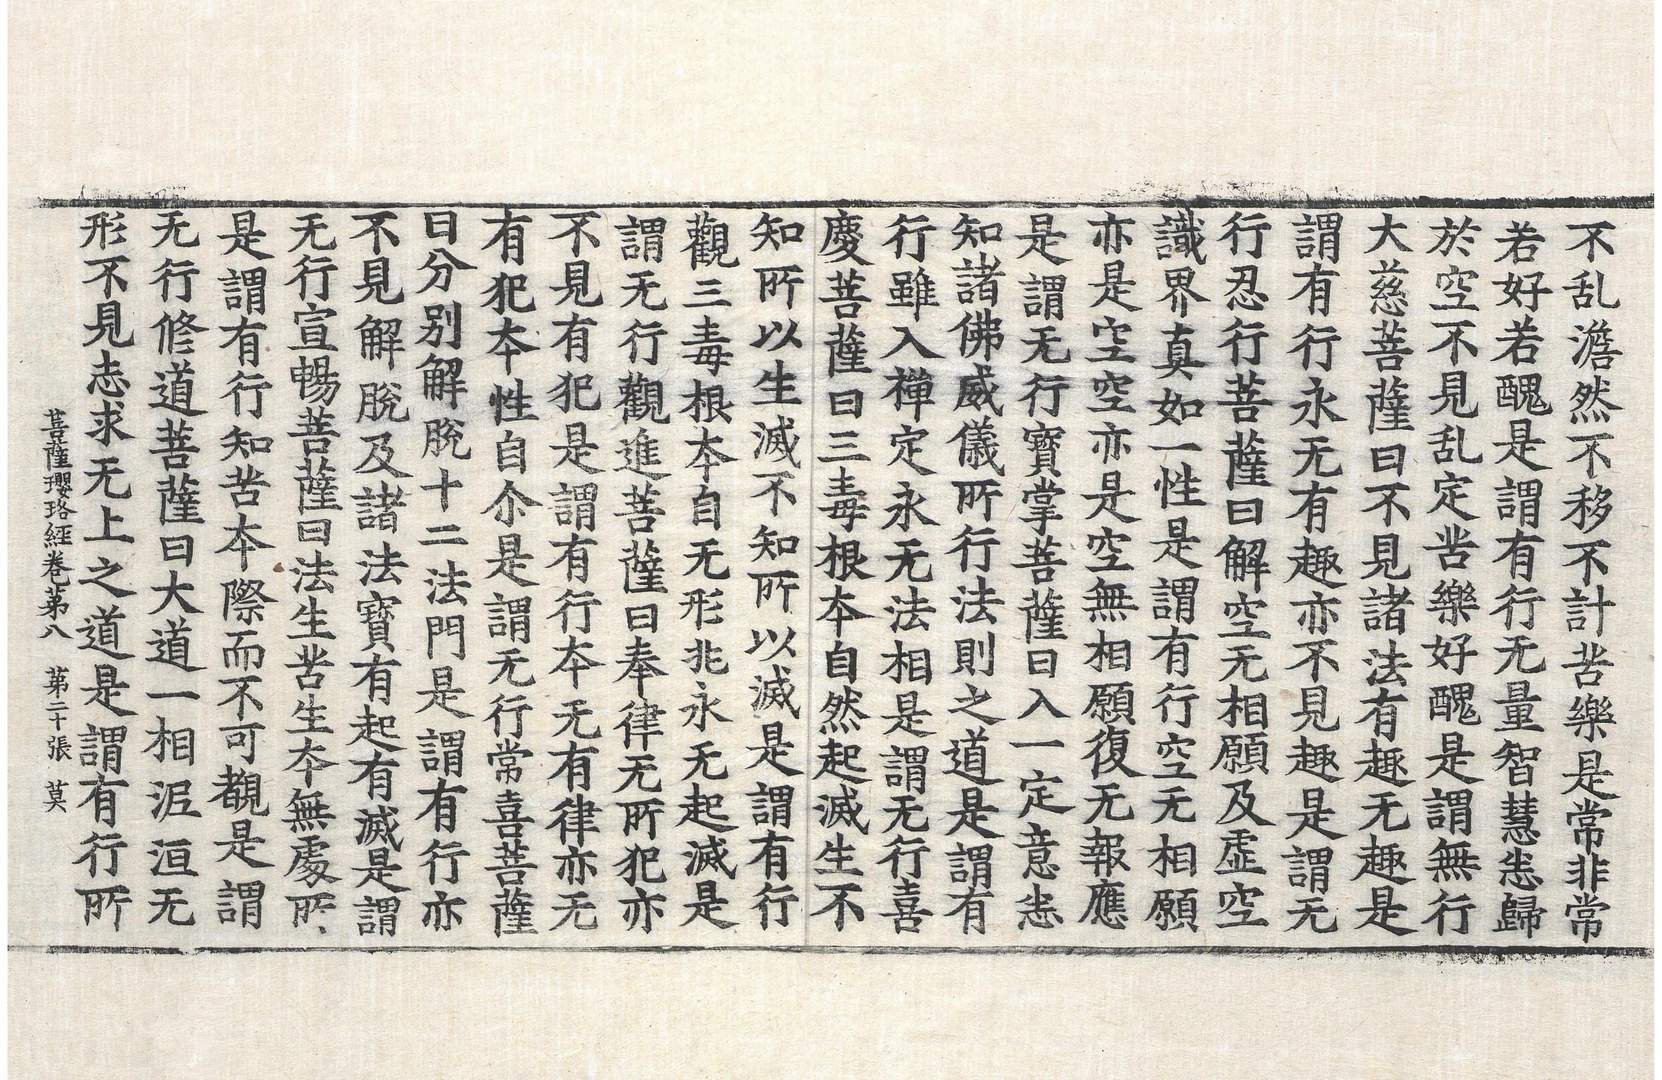 不乱澹然不移不計苦樂是常非常
若好若醜是謂有行无量智慧悉歸
於空不見乱定苦樂好醜是謂無行
大慈菩薩曰不見諸法有趣无趣是
謂有行永无有趣亦不見趣是謂无
行忍行菩薩曰解空无相願及虛空
識界真如一性是謂有行空无相願
亦是空空亦是空無相願復无報應
是謂无行寶掌菩薩曰入一定意悉
知諸佛威儀所行法則之道是謂有
行雖入禪定永无法相是謂无行喜
慶菩薩曰三毒根本自然起滅生不
知所以生滅不知所以滅是謂有行
觀三毒根本自无形兆永无起滅是
謂无行觀進菩薩曰奉律无所犯亦
不見有犯是謂有行本无有律亦无
有犯本性自尒是謂无行常喜菩薩
曰分別解脫十二法門是謂有行亦
不見解脫及諸法寶有起有滅是謂
无行宣暢菩薩曰法生苦生本無處所
是謂有行知苦本際而不可覩是謂
无行修道菩薩曰大道一相泥洹无
形不見志求无上之道是謂有行所
菩薩瓔珞經卷第八　第二十張　莫